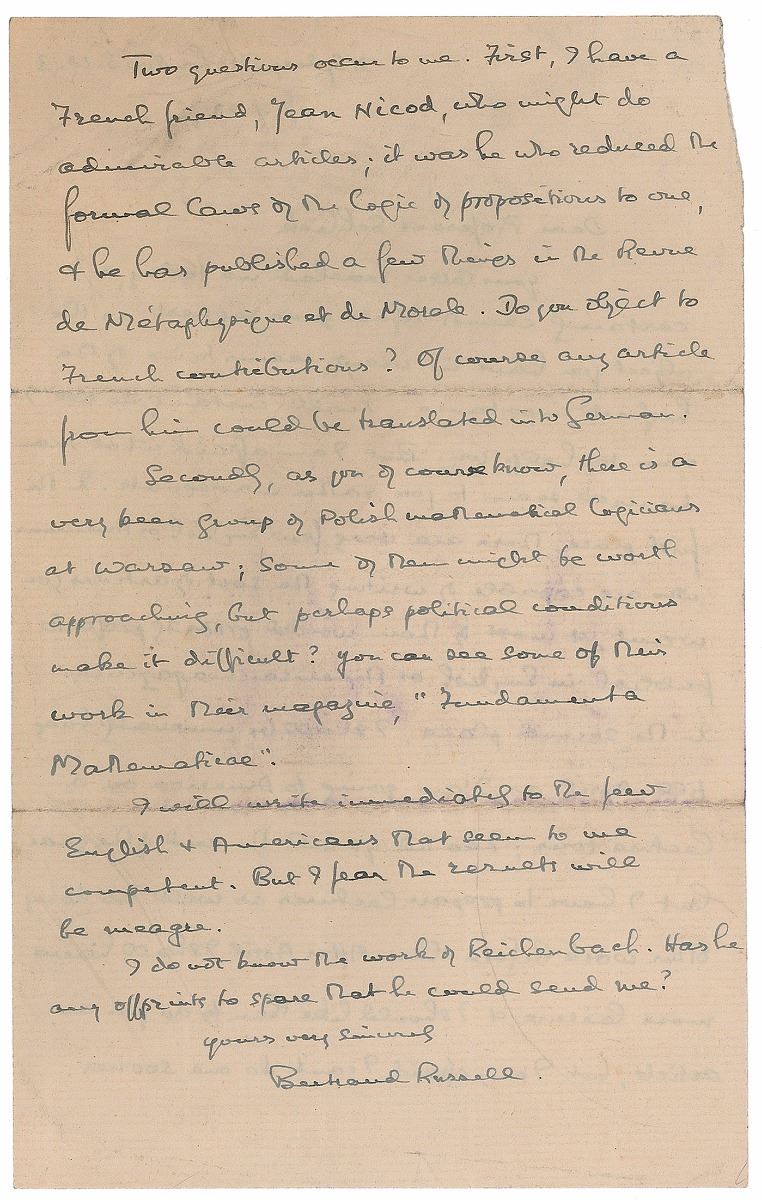 Two questions occur to me. First, I have a
French friend, Jean Nicod, who might do
admirable articles; it was he who reduced the
formal laws of the logic of propositions to one,
& he has published a few things in the Revue
de Métaphysique et de Morale. Do you object to
French contributions? Of course any article
from him could be translated into German.
Secondly, as you of course know, there is a
very keen group of Polish mathematical logicians
at Warsaw; some of them might be worth
approaching, but perhaps political conditions
make it difficult? You can see some of their
work in their magazine, "Fundamenta
Mathematicae".
I will write immediately to the few
English & Americans that seem to me
competent. But I fear the results will
be meagre.
I do not know the work of Reichenbach. Has he
any offprints to spare that he could send me?
Yours very sincerely
Bertrand Russell.